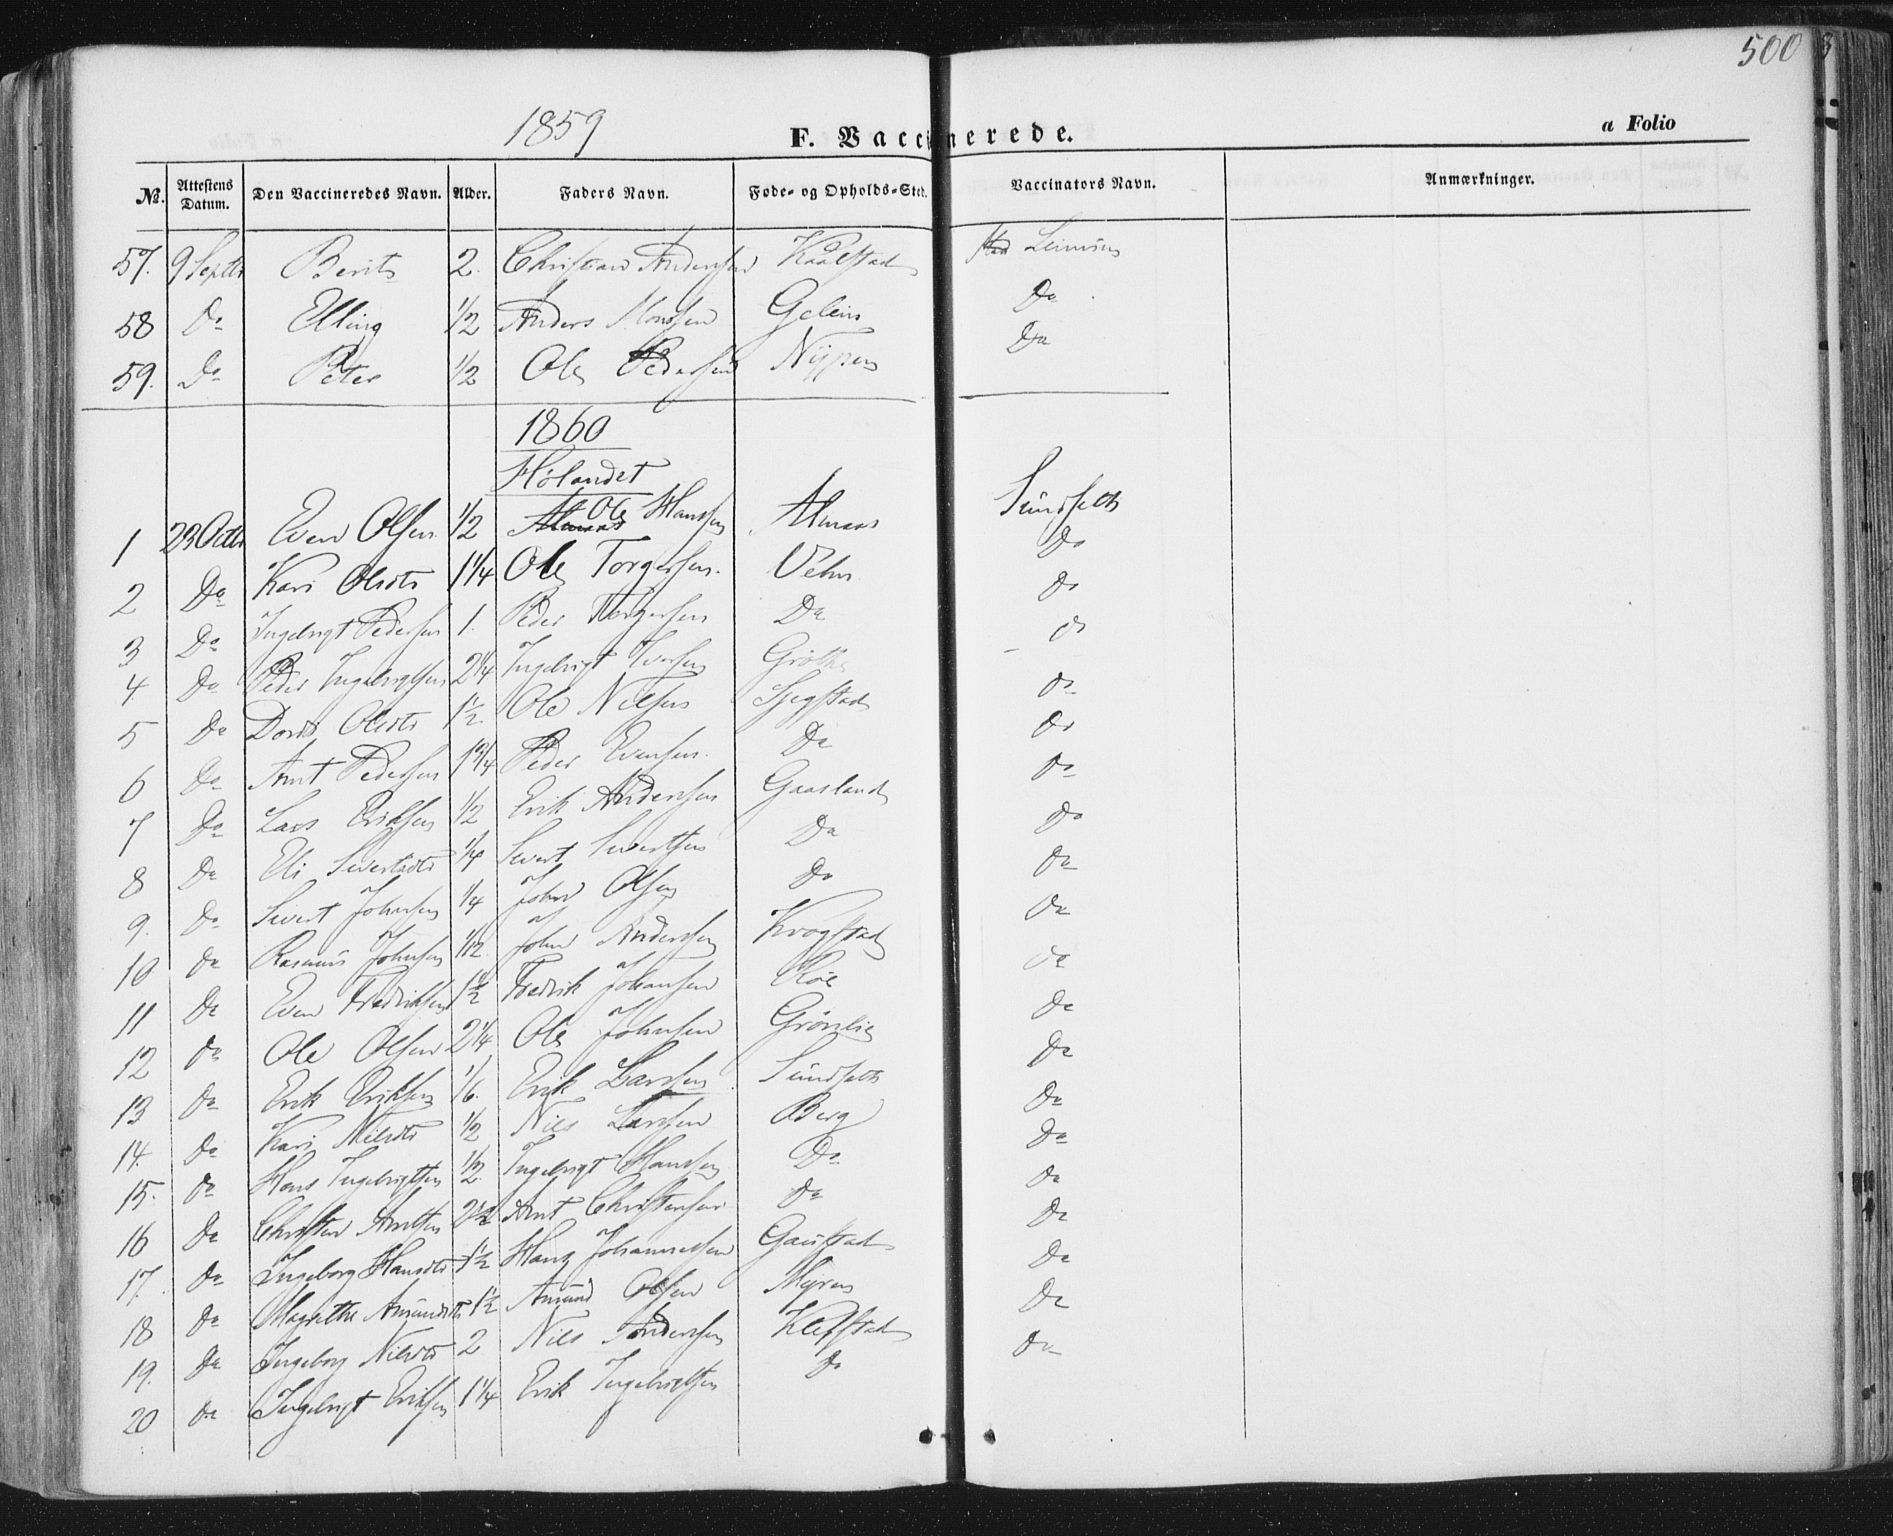 500
1859
F. Vaccinerede.
a Folio
No. Attestens Datum. Den Vaccineredes Navn. Alder. Faders Navn. Føde- og Opholds-Sted. Vaccinators Navn. Anmærkninger.
57. 9 Septbr Berit 2. Christian Andersen Kaalstad
58 Do Elling 1/2 Anders Monsen Do
59. Do Peter 1/2 Ole Pedersen Nypen Do
1860
Hølandet
1 23 Octbr Even Olsen 1/2 Ole Hansen Almaas Sundseth
2 Do Kari Olsdtr 1 1/4 Ole Torgersen Do
3 Do Ingebrigt Pedersen 1. Peder Torgersen Do Do
4 Do Peder Ingebrigtsen 2 1/4 Ingebrigt Iversen do
5 Do Dordi Olsdtr 1 1/2 Ole Nilsen do
6 Do Arnt Pedersen 1 3/4 Peder Evensen Do do
7 Do Lars Eriksen 1/2 Erik Andersen Gaasland do
8 Do Eli Sivertsdtr 1/4 Sivert Sivertsen Do Do
9. Do Sivert Johnsen 1/4 John Olsen Do Do
10 Do Rasmus Johnsen 1/12 John Andersen Krogstad Do
11 Do Even Fredriksen 1 1/2 Fredrik Johansen do
12 Do Ole Olsen 2 1/4 Ole Johnsen Grønlie Do
13 Do Erik Eriksen 1/6. Erik Larsen Sundseth Do
14. Do Kari Nilsdtr 1/2 Nils Larsen Berg Do
15. Do Hans Ingebrigtsen 1/2. Ingebrigt Hansen Do Do
16 Do Christen Arntsen 2 1/2 Arnt Christensen Do Do
17. Do Ingeborg Hansdtr 1 1/2 Hans Johannesen Gaustad Do
18 Do Magrethe Amundsdtr 1 1/2 Amund Olsen Myren Do
19. Do Ingeborg Nilsdtr 2 Nils Andersen Klefstad Do
20 Do Ingebrigt Eriksen 1 1/4 Erik Ingebrigtsen Do Do